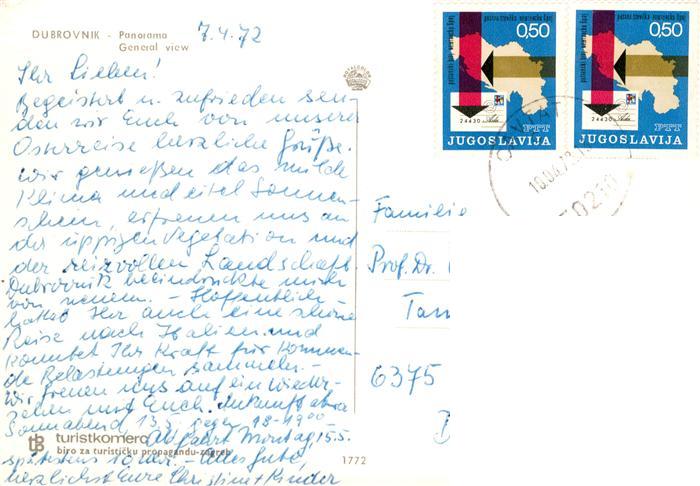 DUBROVNIK - Panorama
General view
7.4.72
Ihr Lieben!
Begeistert u. zufrieden sen-
den wir Euch von unserer
Osterreise herzliche Grüße.
Wir genießen das milde
Klima und eitel Sonnen-
schein, erfreuen uns an
der üppigen Vegetation und
der reizvollen Landschaft.
Dubrovnik beeindruckte mich
von neuem. - Hoffentlich
hattet Ihr auch eine schöne
Reise nach Italien und
konntet Ihr Kraft für kommen-
de Belastungen sammeln.-
Wir freuen uns auf ein Wieder-
sehen mit Euch. Ankunft
Sonnabend 13.5. gegen 18-1900
Abfahrt Montag, 15.5.
spätestens 10 Uhr. - Alles Gute,
herzlichst Eure Christine + Kinder
tb turistkomerc
biro za turističku propagandu-zagreb
1772
0,50
24430
PTT
JUGOSLAVIJA
0,50
24430
PTT
JUGOSLAVIJA
CAVTAT
Familie
Prof. Dr.
6375